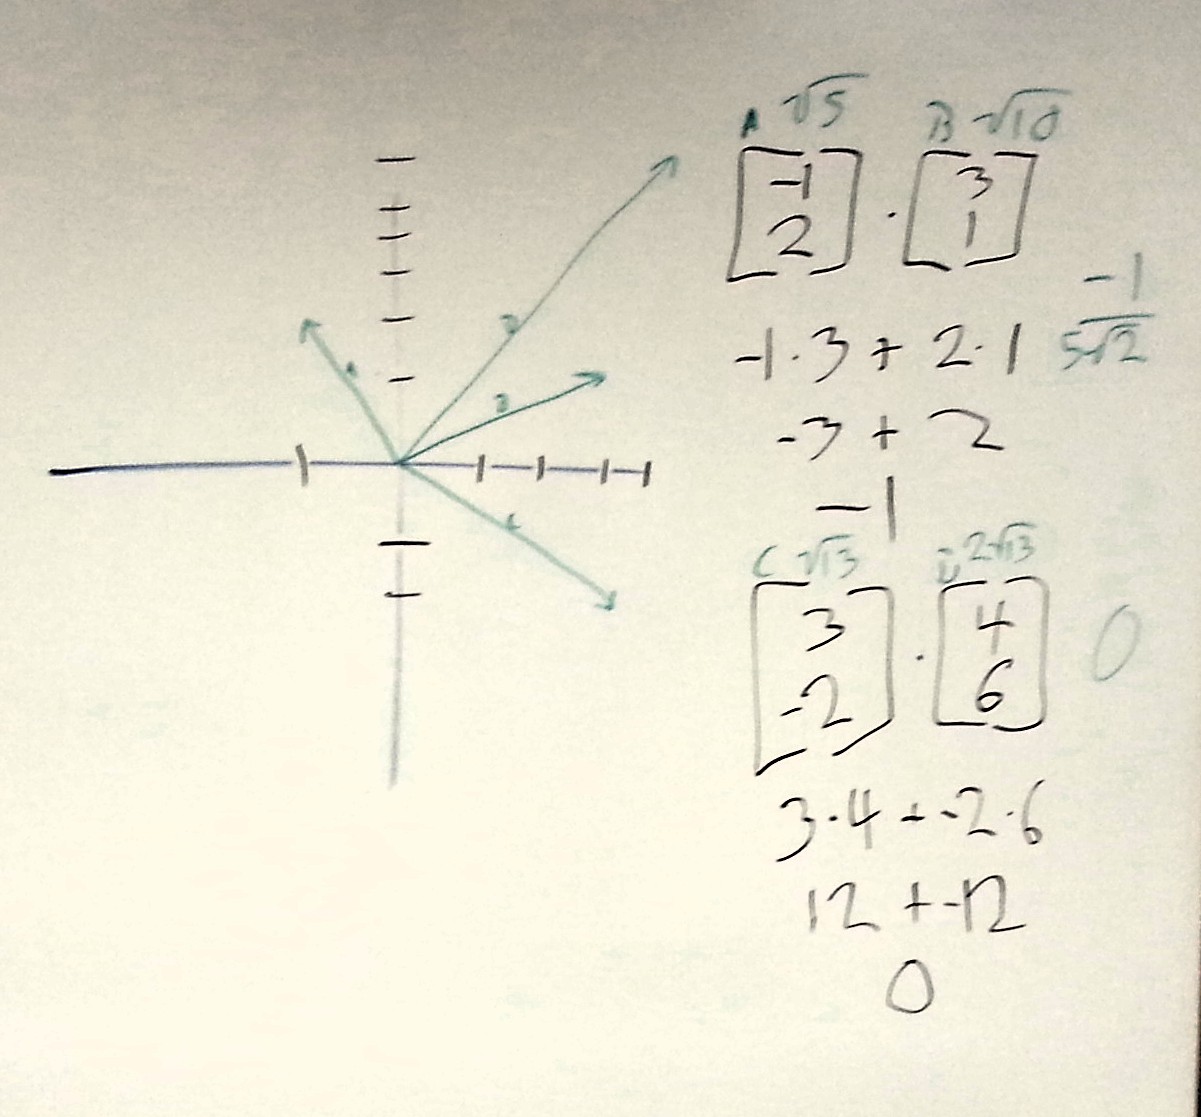 A √5 B √10
[-1 2] · [3 1]
-1
5√2
-1·3 + 2·1
-3 + 2
-1
C √13 D 2√13
[3 -2] · [4 6] 0
3·4 + -2·6
12 + -12
0
A
D
B
C